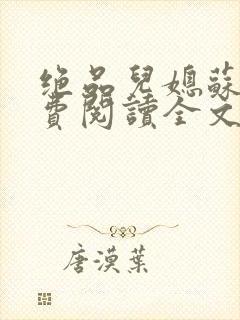 绝品兒媳蘇
費閱讀全文
唐漠葉